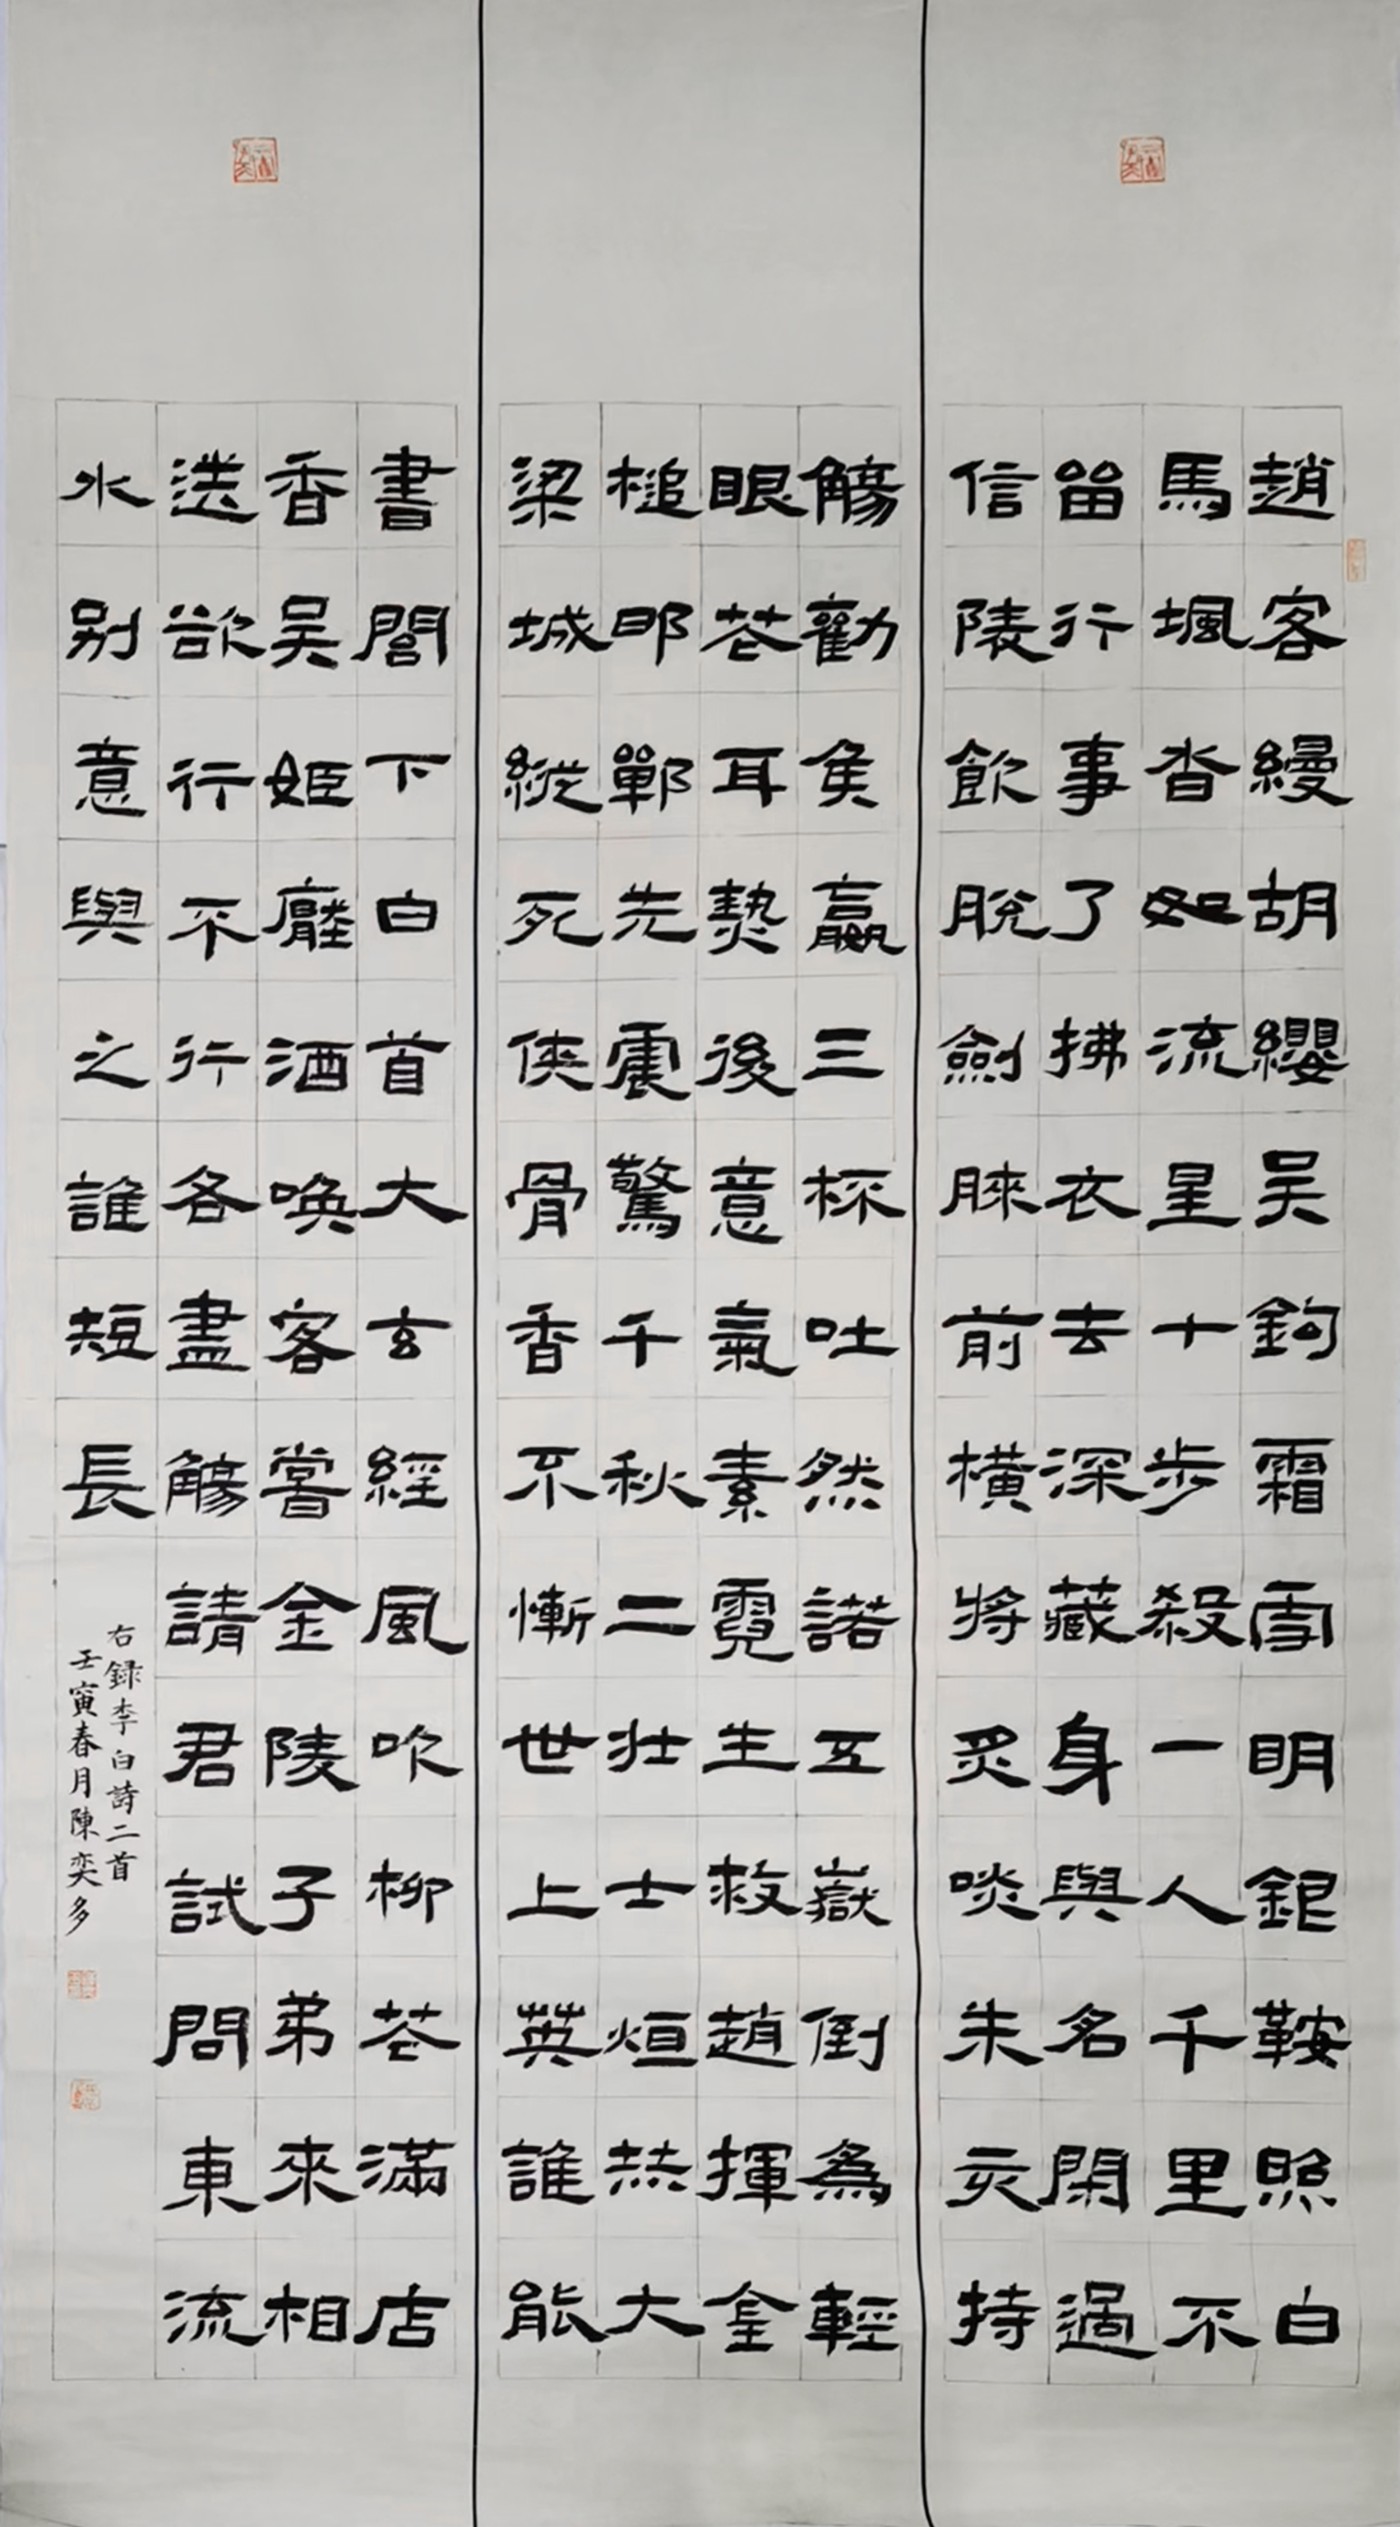 趙客縵胡纓吴鉤霜雪明銀鞍照白
馬颯沓如流星十步殺一人千里不
留行事了拂衣去深藏身與名閑過
信陵飲脫劍膝前橫將炙啖朱亥持
觴勸侯嬴三杯吐然諾五嶽倒為輕
眼花耳熱後意氣素霓生救趙揮金
槌邯鄲先震驚千秋二壯士烜赫大
梁城縱死俠骨香不慚世上英誰能
書閣下白首太玄經風吹柳花滿店
香吴姬壓酒喚客嘗金陵子弟來相
送欲行不行各盡觴請君試問東流
水別意與之誰短長
右録李白詩二首
壬寅春月陳奕多